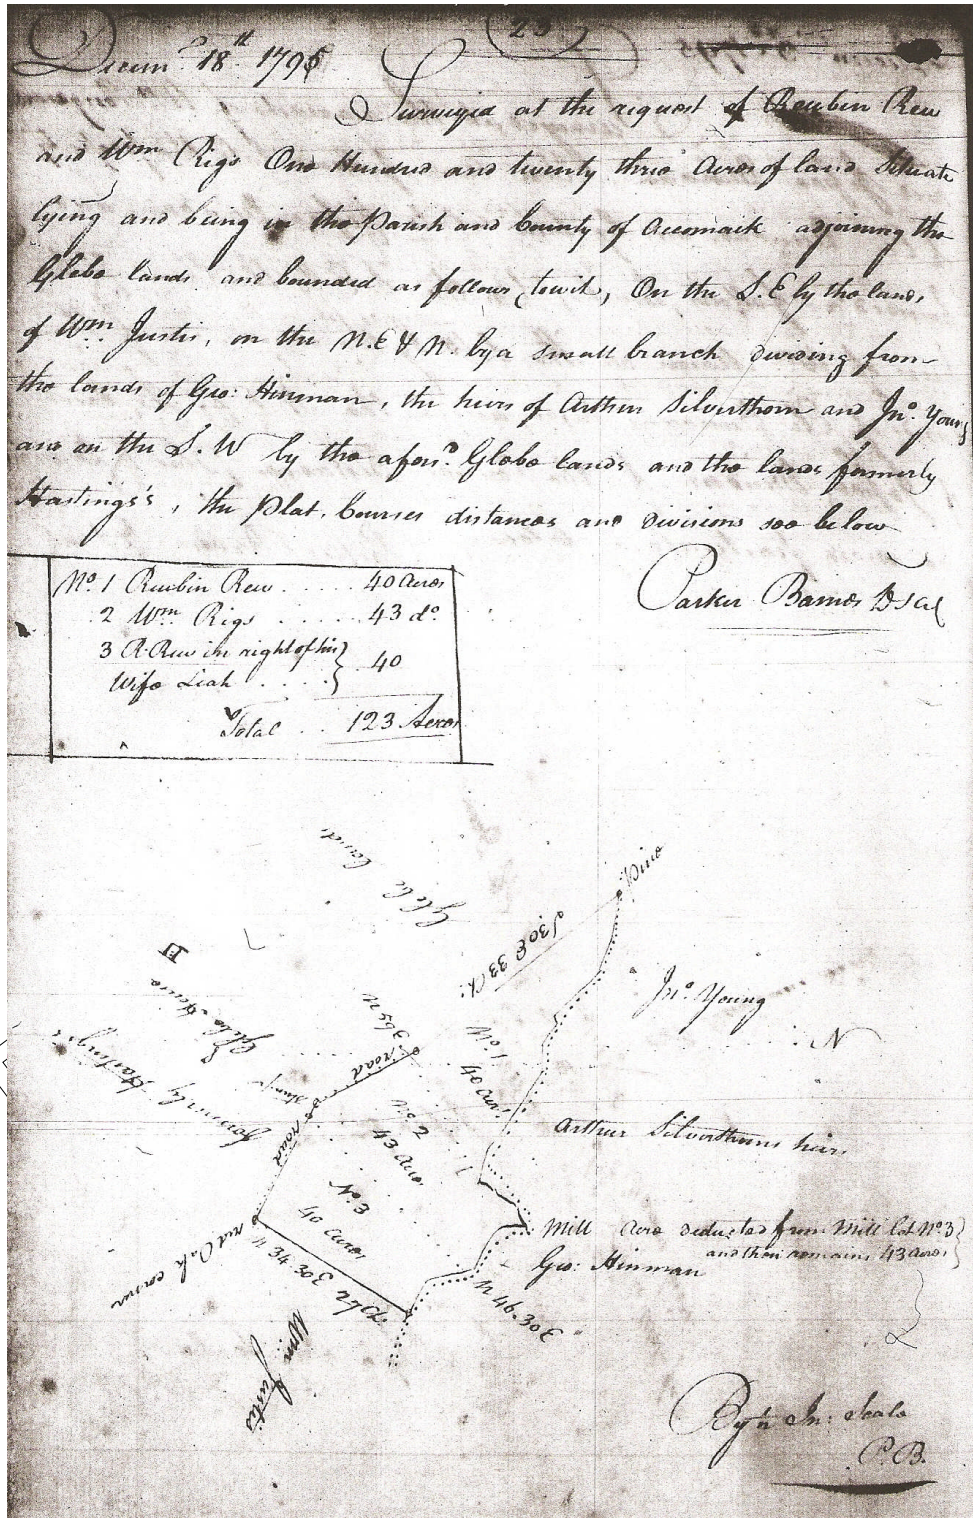 23
Decem.r 18th 1795
Surveyed at the request of Reubin Rew
and Wm Rigs One Hundred and twenty three Acres of land Situate
lying and being in the Parish and County of Accomack adjoining the
Glebe lands and bounded as follows, towit, On the S.E by the lands
of Wm Justis, on the N.E & N. by a small branch dividing from
the lands of Geo: Hinman, the heirs of Arthur Silverthorn and Jno. Young
and on the S.W by the afors.d Glebe lands and the lands formerly
Hastings's, the Plat, Courses distances and divisions see below
Parker Barnes
No. 1 Reubin Rew ..... 40 Acres
2 Wm Rigs ..... 43 do.
3 R. Rew in right of his
Wife Leah .... } 40
Total .. 123 Acres
Glebe Land
Pine
S30E 33 Ch.
Glebe House
formerly Hastings's
Jno. Young
N
road
No 1
40 Acres
stump
road
No 2
43 Acres
Arthur Silverthorns heirs
No 3
40 acres
Mill Acre deducted from Mill Lot No. 3
and then remains 43 acres
Geo: Hinman
red Oak corner
N 34.30E
N 46.30E
Wm Justis
By Scale
P.B.